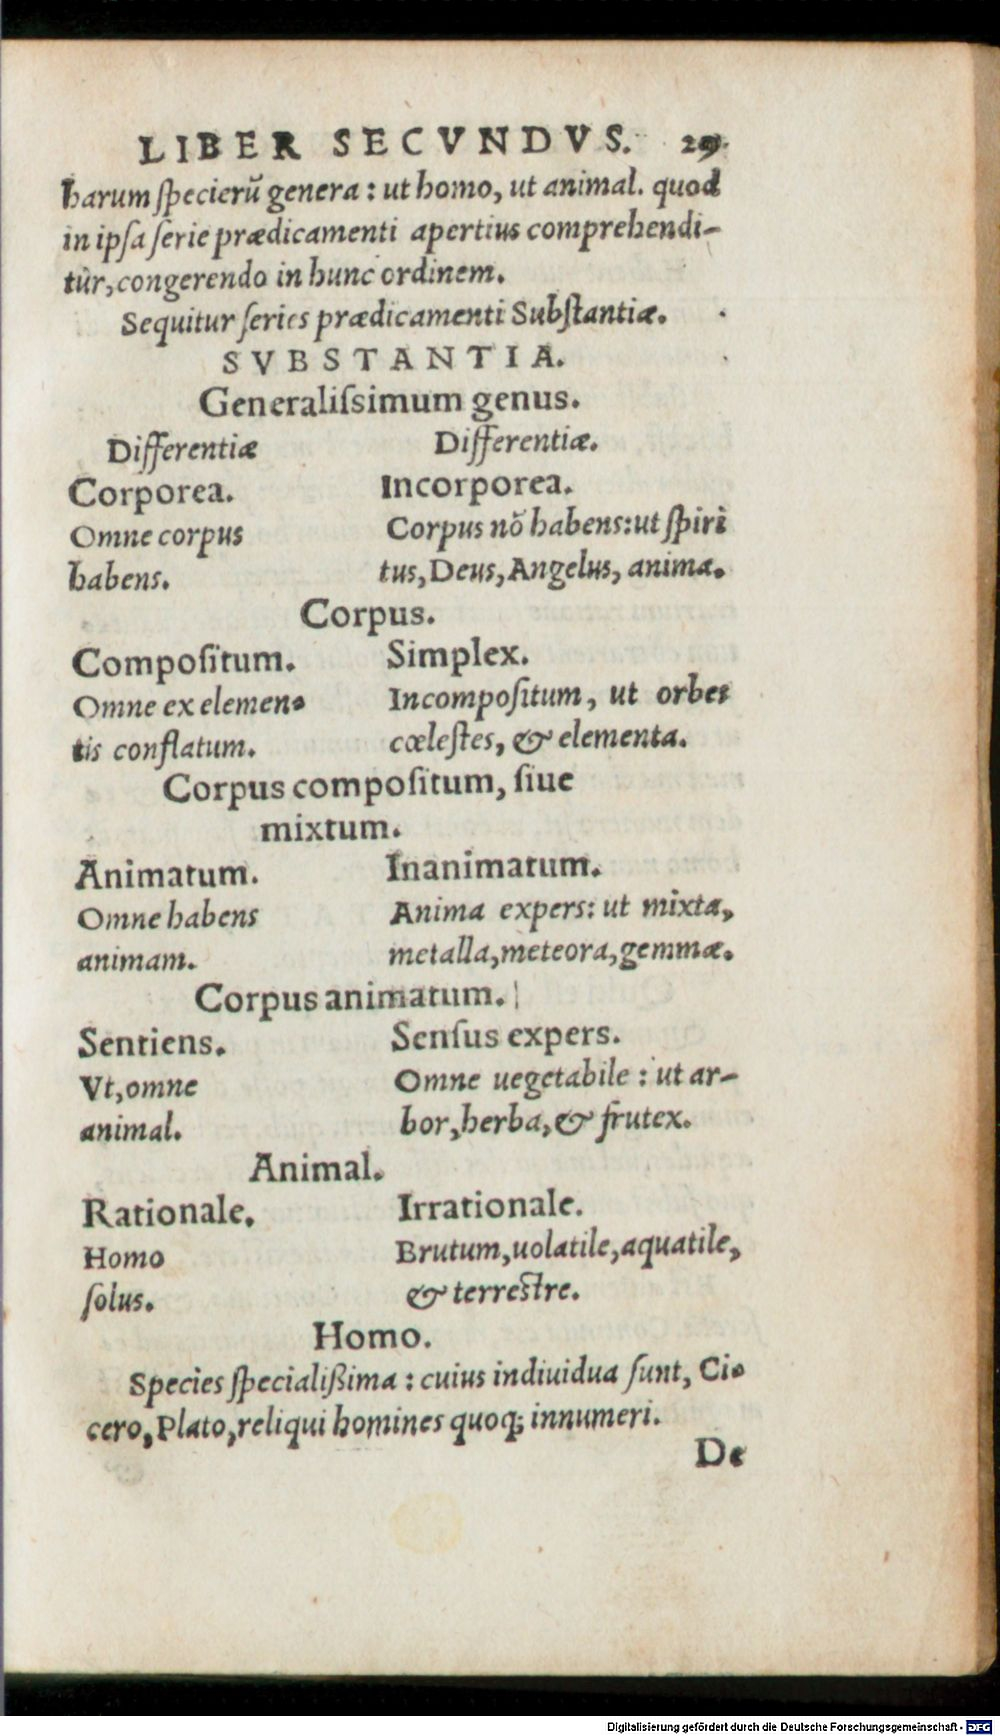 LIBER SECVNDVS. 29.
harum specierū genera : ut homo, ut animal. quod
in ipsa serie prædicamenti apertius comprehendi-
tur, congerendo in hunc ordinem.
Sequitur series prædicamenti Substantiæ.
SVBSTANTIA.
Generalissimum genus.
Differentiæ Differentiæ.
Corporea. Incorporea.
Omne corpus Corpus nō habens: ut spiri
habens. tus, Deus, Angelus, anima.
Corpus.
Compositum. Simplex.
Omne ex elemen- Incompositum, ut orbes
tis conflatum. cœlestes, & elementa.
Corpus compositum, siue
mixtum.
Animatum. Inanimatum.
Omne habens Anima expers: ut mixta,
animam. metalla, meteora, gemmæ.
Corpus animatum.
Sentiens. Sensus expers.
Vt, omne Omne uegetabile : ut ar-
animal. bor, herba, & frutex.
Animal.
Rationale. Irrationale.
Homo Brutum, uolatile, aquatile,
solus. & terrestre.
Homo.
Species specialißima : cuius indiuidua sunt, Ci-
cero, Plato, reliqui homines quoq; innumeri.
De
Digitalisierung gefördert durch die Deutsche Forschungsgemeinschaft - DFG